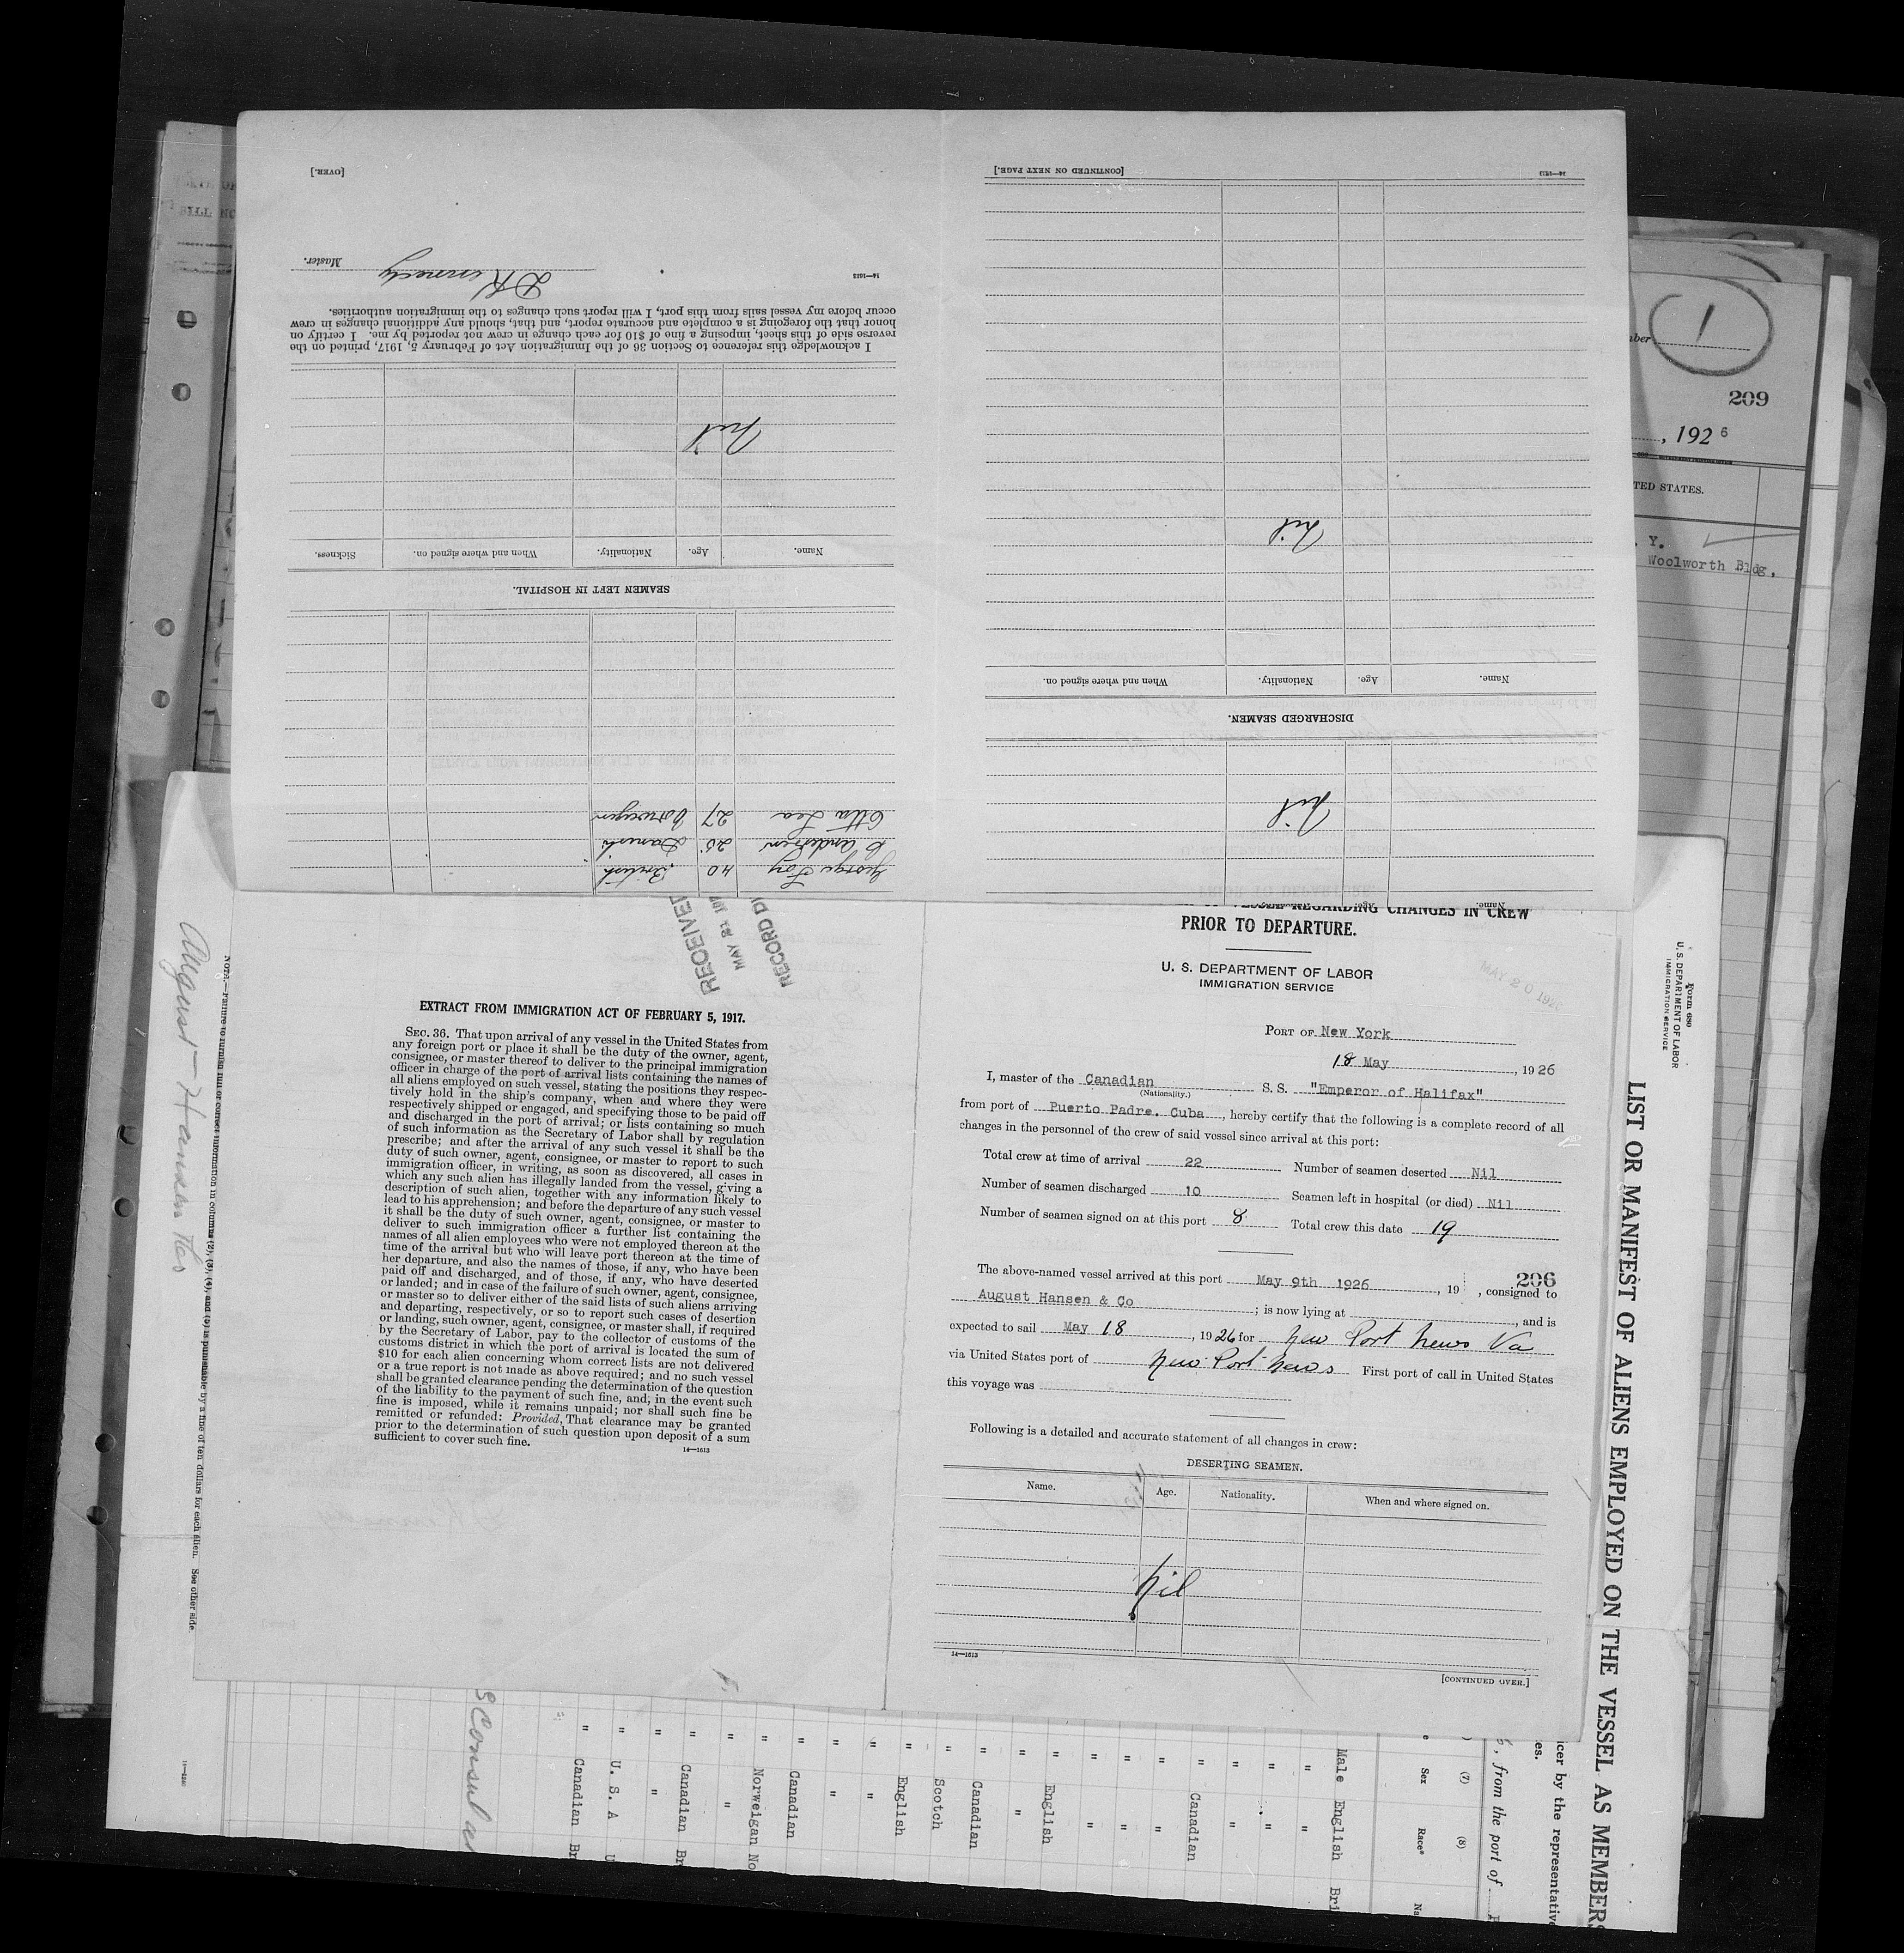 [OVER.]
Master.
D Kennedy
14—1613
I acknowledge this reference to Section 36 of the Immigration Act of February 5, 1917, printed on the
reverse side of this sheet, imposing a fine of $10 for each change in crew not reported by me. I certify on
honor that the foregoing is a complete and accurate report, and that, should any additional changes in crew
occur before my vessel sails from this port, I will report such changes to the immigration authorities.
Nil
Name. Age. Nationality. When and where signed on. Sickness.
SEAMEN LEFT IN HOSPITAL.
Otto Lea 27 Norwegen
Andersen 25 Danish
George Foy 40 British
[CONTINUED ON NEXT PAGE.]
14—1613
Nil
Name. Age. Nationality. When and where signed on.
DISCHARGED SEAMEN.
Nil
Name. Age.
1
209
, 192 6
TED STATES.
. Y.
Woolworth Bldg,
RECEIVED
MAY 21 192
RECORD DI
EXTRACT FROM IMMIGRATION ACT OF FEBRUARY 5, 1917.
SEC. 36. That upon arrival of any vessel in the United States from
any foreign port or place it shall be the duty of the owner, agent,
consignee, or master thereof to deliver to the principal immigration
officer in charge of the port of arrival lists containing the names of
all aliens employed on such vessel, stating the positions they respec-
tively hold in the ship's company, when and where they were
respectively shipped or engaged, and specifying those to be paid off
and discharged in the port of arrival; or lists containing so much
of such information as the Secretary of Labor shall by regulation
prescribe; and after the arrival of any such vessel it shall be the
duty of such owner, agent, consignee, or master to report to such
immigration officer, in writing, as soon as discovered, all cases in
which any such alien has illegally landed from the vessel, giving a
description of such alien, together with any information likely to
lead to his apprehension; and before the departure of any such vessel
it shall be the duty of such owner, agent, consignee, or master to
deliver to such immigration officer a further list containing the
names of all alien employees who were not employed thereon at the
time of the arrival but who will leave port thereon at the time of
her departure, and also the names of those, if any, who have been
paid off and discharged, and of those, if any, who have deserted
or landed; and in case of the failure of such owner, agent, consignee,
or master so to deliver either of the said lists of such aliens arriving
and departing, respectively, or so to report such cases of desertion
or landing, such owner, agent, consignee, or master shall, if required
by the Secretary of Labor, pay to the collector of customs of the
customs district in which the port of arrival is located the sum of
$10 for each alien concerning whom correct lists are not delivered
or a true report is not made as above required; and no such vessel
shall be granted clearance pending the determination of the question
of the liability to the payment of such fine, and, in the event such
fine is imposed, while it remains unpaid; nor shall such fine be
remitted or refunded: Provided, That clearance may be granted
prior to the determination of such question upon deposit of a sum
sufficient to cover such fine.
14—1613
REGARDING CHANGES IN CREW
PRIOR TO DEPARTURE.
U. S. DEPARTMENT OF LABOR
IMMIGRATION SERVICE
MAY 20 1926
PORT OF New York
18 May , 1926
I, master of the Canadian S. S. "Emperor of Halifax"
(Nationality.)
from port of Puerto Padre. Cuba, hereby certify that the following is a complete record of all
changes in the personnel of the crew of said vessel since arrival at this port:
Total crew at time of arrival 22 Number of seamen deserted Nil
Number of seamen discharged 10 Seamen left in hospital (or died) Nil
Number of seamen signed on at this port 8 Total crew this date 19
206
The above-named vessel arrived at this port May 9th 1926, 19 , consigned to
August Hansen & Co ; is now lying at , and is
expected to sail May 18, 1926 for New Port News Va
via United States port of New Port News First port of call in United States
this voyage was
Following is a detailed and accurate statement of all changes in crew:
DESERTING SEAMEN.
Name. Age. Nationality. When and where signed on.
Nil
14—1613
[CONTINUED OVER.]
August Hansen
NOTE.—Failure to furnish full or correct information in columns (2), (3), (4), and (5) is punishable by a fine of ten dollars for each alien. See other side.
Form 680
U. S. DEPARTMENT OF LABOR
IMMIGRATION SERVICE
LIST OR MANIFEST OF ALIENS EMPLOYED ON THE VESSEL AS MEMBERS
icer by the representative
es.
, from the port of
(7) (8)
Sex Race*
Male English Bri
" "
" "
" "
" Canadian
" "
" "
" "
" English
" "
" Canadian
" Scotch
" English
" "
" "
" Canadian
" Norweigan No
" "
" Canadian Br
" "
" U. S. A U
" Canadian Br
S Consular